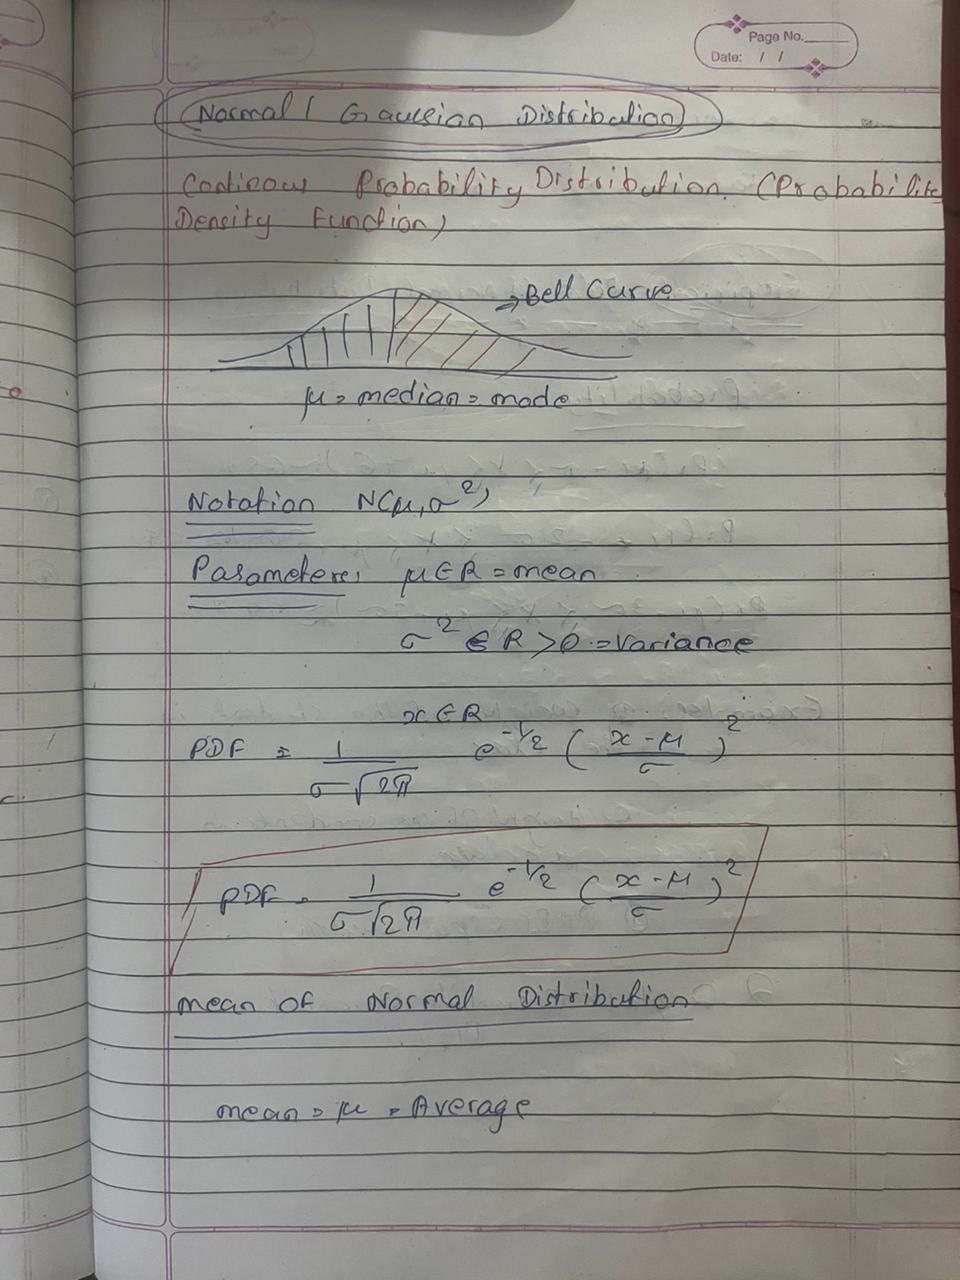 Page No.
Date: / /
Normal / Gaussian Distribution
Continous Probability Distribution. (Probabilite
Density Function)
→ Bell Curve
μ = median = mode
Notation N(μ, σ²)
Parameters, μ ∈ R = mean
σ² ∈ R > 0 = variance
x ∈ R
PDF = 1/(σ√2π) e^-1/2 ((x-μ)/σ)²
PDF = 1/(σ√2π) e^-1/2 ((x-μ)/σ)²
mean of Normal Distribution
mean = μ = Average